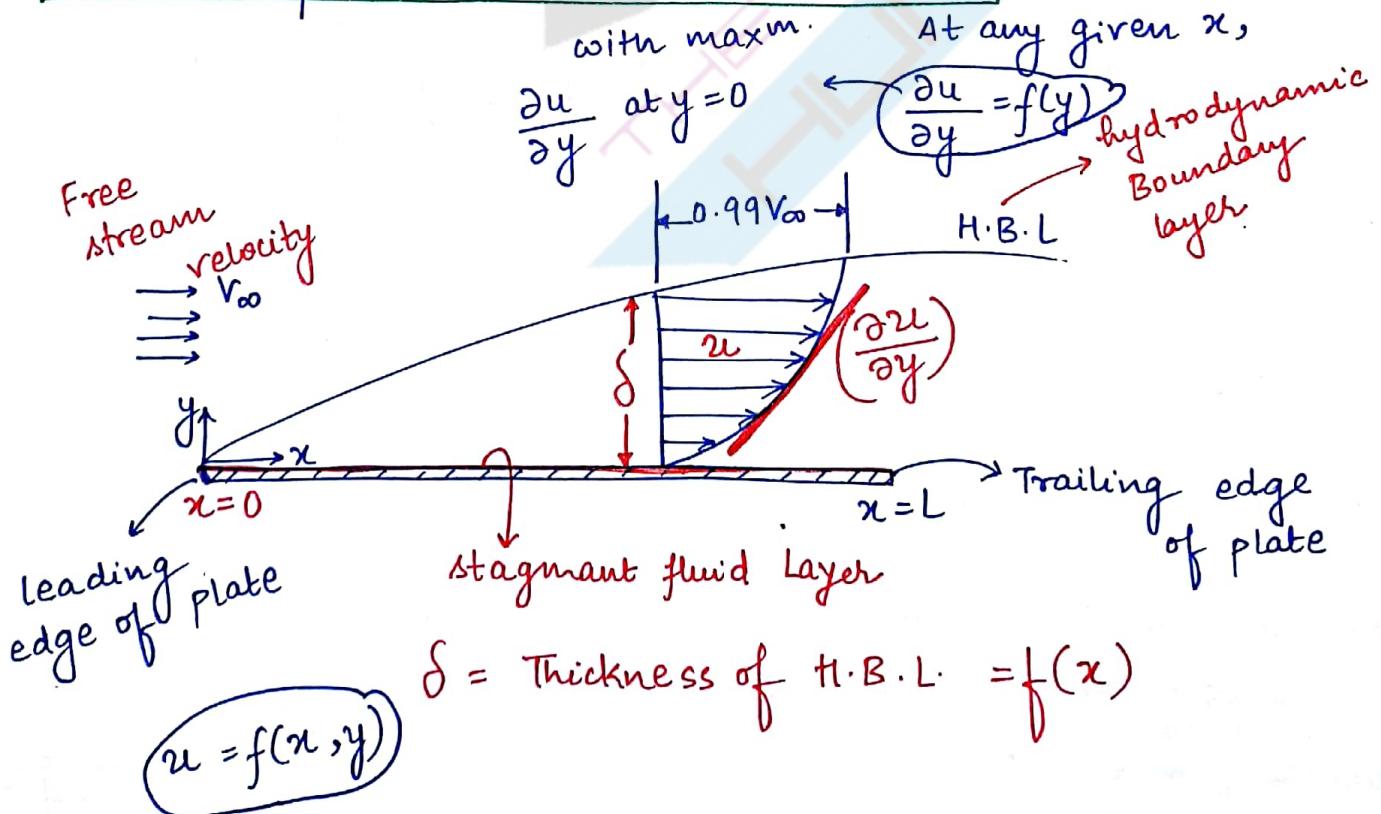 with maxm.
∂u/∂y at y=0
At any given x,
∂u/∂y = f(y)
hydrodynamic
Boundary
layer.
Free
stream
velocity
V∞
0.99V∞
H.B.L
u
δ
(∂u/∂y)
y
x
x=0
x=L
Trailing edge
of plate
leading
edge of plate
stagmant fluid Layer
δ = Thickness of H.B.L. = f(x)
u = f(x,y)
THE